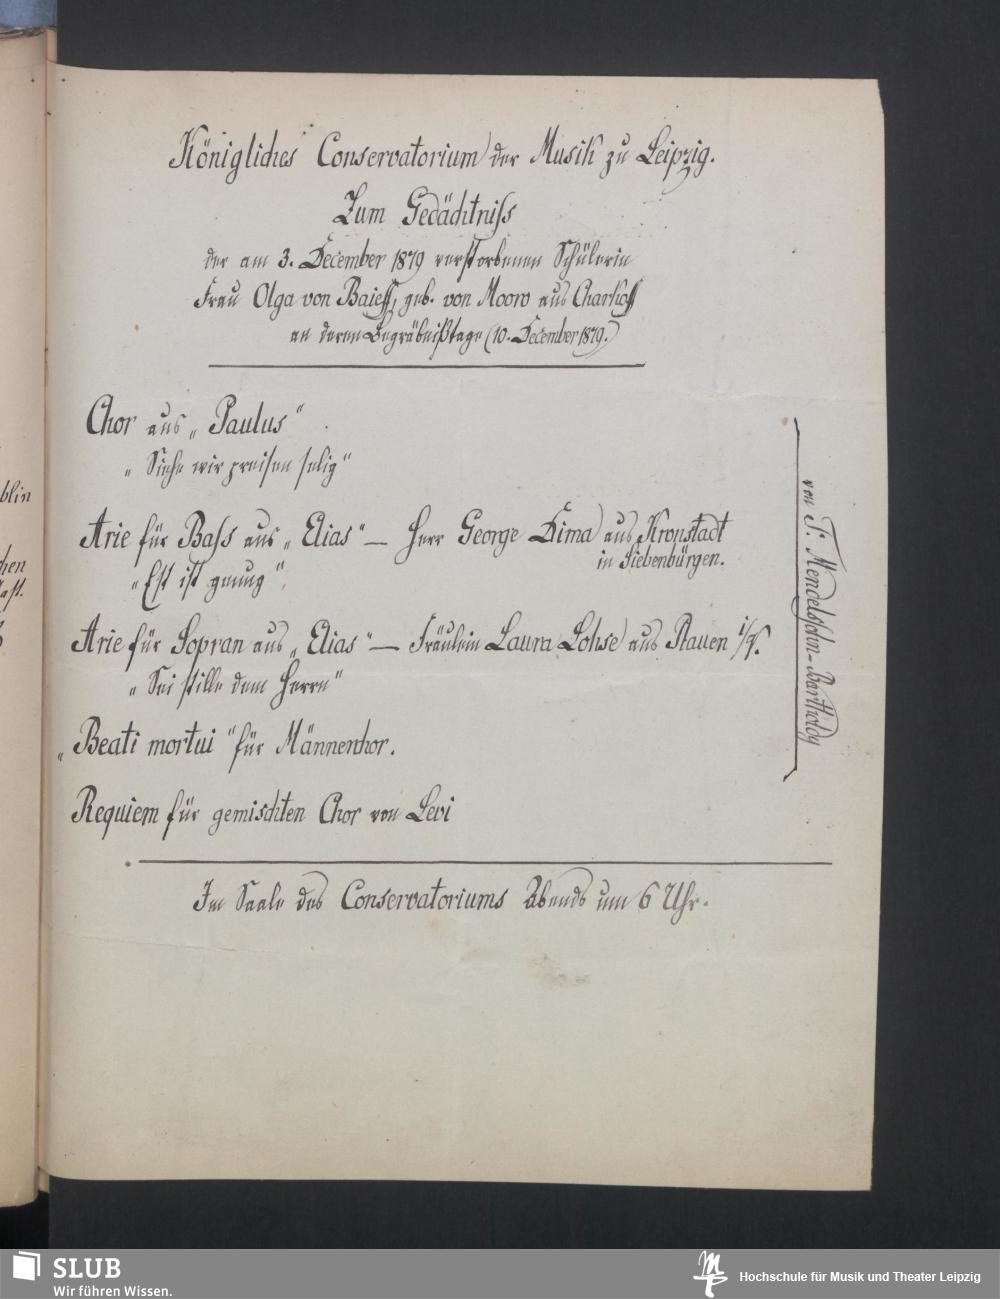 Königliches Conservatorium der Musik zu Leipzig.
Zum Gedächtniss
der am 3. December 1879 verstorbenen Schülerin
Frau Olga von Baieff, geb. von Moorv aus Charkoff
an deren Begräbnißtage (10. December 1879.)
Chor aus „Paulus“
„Siehe wir preisen selig“
Arie für Bass aus „Elias“ — Herr George Dima aus Kronstadt
in Siebenbürgen.
„Est ist genug“
Arie für Sopran aus „Elias“ — Fräulein Laura Lohse aus Plauen i/V.
„Sei stille dem Herrn“
„Beati mortui“ für Männerchor.
von F. Mendelssohn-Bartholdy
Requiem für gemischten Chor von Levi
Im Saale des Conservatoriums Abends um 6 Uhr.
blin
chen
SLUB
Wir führen Wissen.
Hochschule für Musik und Theater Leipzig